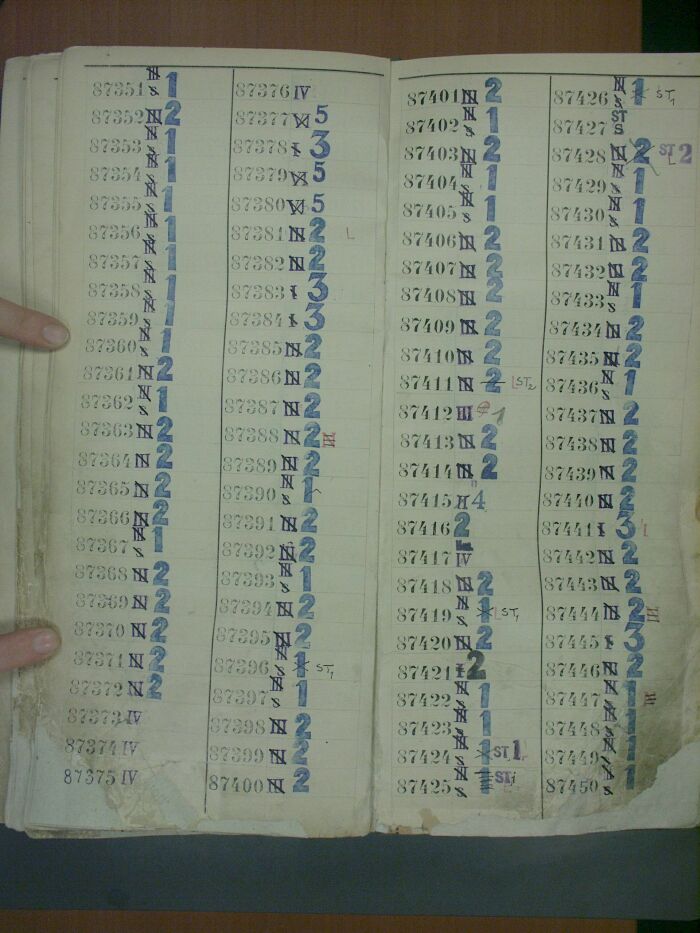 87351 N S 1
87352 N 2
87353 N S 1
87354 N S 1
87355 N S 1
87356 N S 1
87357 N S 1
87358 N S 1
87359 N S 1
87360 N S 1
87361 N 2
87362 N S 1
87363 N 2
87364 N 2
87365 N 2
87366 N 2
87367 N S 1
87368 N 2
87369 N 2
87370 N 2
87371 N 2
87372 N 2
87373 IV
87374 IV
87375 IV
87376 IV
87377 5
87378 I 3
87379 5
87380 5
87381 N 2 L
87382 N 2
87383 I 3
87384 I 3
87385 N 2
87386 N 2
87387 N 2
87388 N 2 III
87389 N 2
87390 N S 1
87391 N 2
87392 N 2
87393 N S 1
87394 N 2
87395 N 2
87396 N S 1 ST1
87397 N S 1
87398 N 2
87399 N 2
87400 N 2
87401 N 2
87402 N S 1
87403 N 2
87404 N S 1
87405 N S 1
87406 N 2
87407 N 2
87408 N 2
87409 N 2
87410 N 2
87411 N 2 L ST2
87412 III 1
87413 N 2
87414 N 2
87415 4
87416 2
87417 IV
87418 N 2
87419 N S 1 L ST1
87420 N 2
87421 I 2
87422 N S 1
87423 N S 1
87424 N S 1 ST 1
87425 N S 1 ST1
87426 N S 1 ST1
87427 ST S
87428 N 2 ST L 2
87429 N S 1
87430 N S 1
87431 N 2
87432 N 2
87433 N S 1
87434 N 2
87435 N 2
87436 N S 1
87437 N 2
87438 N 2
87439 N 2
87440 N 2
87441 I 3 L
87442 N 2
87443 N 2
87444 N 2 III
87445 I 3
87446 N 2
87447 N S 1 III
87448 N S 1
87449 N S 1
87450 N S 1